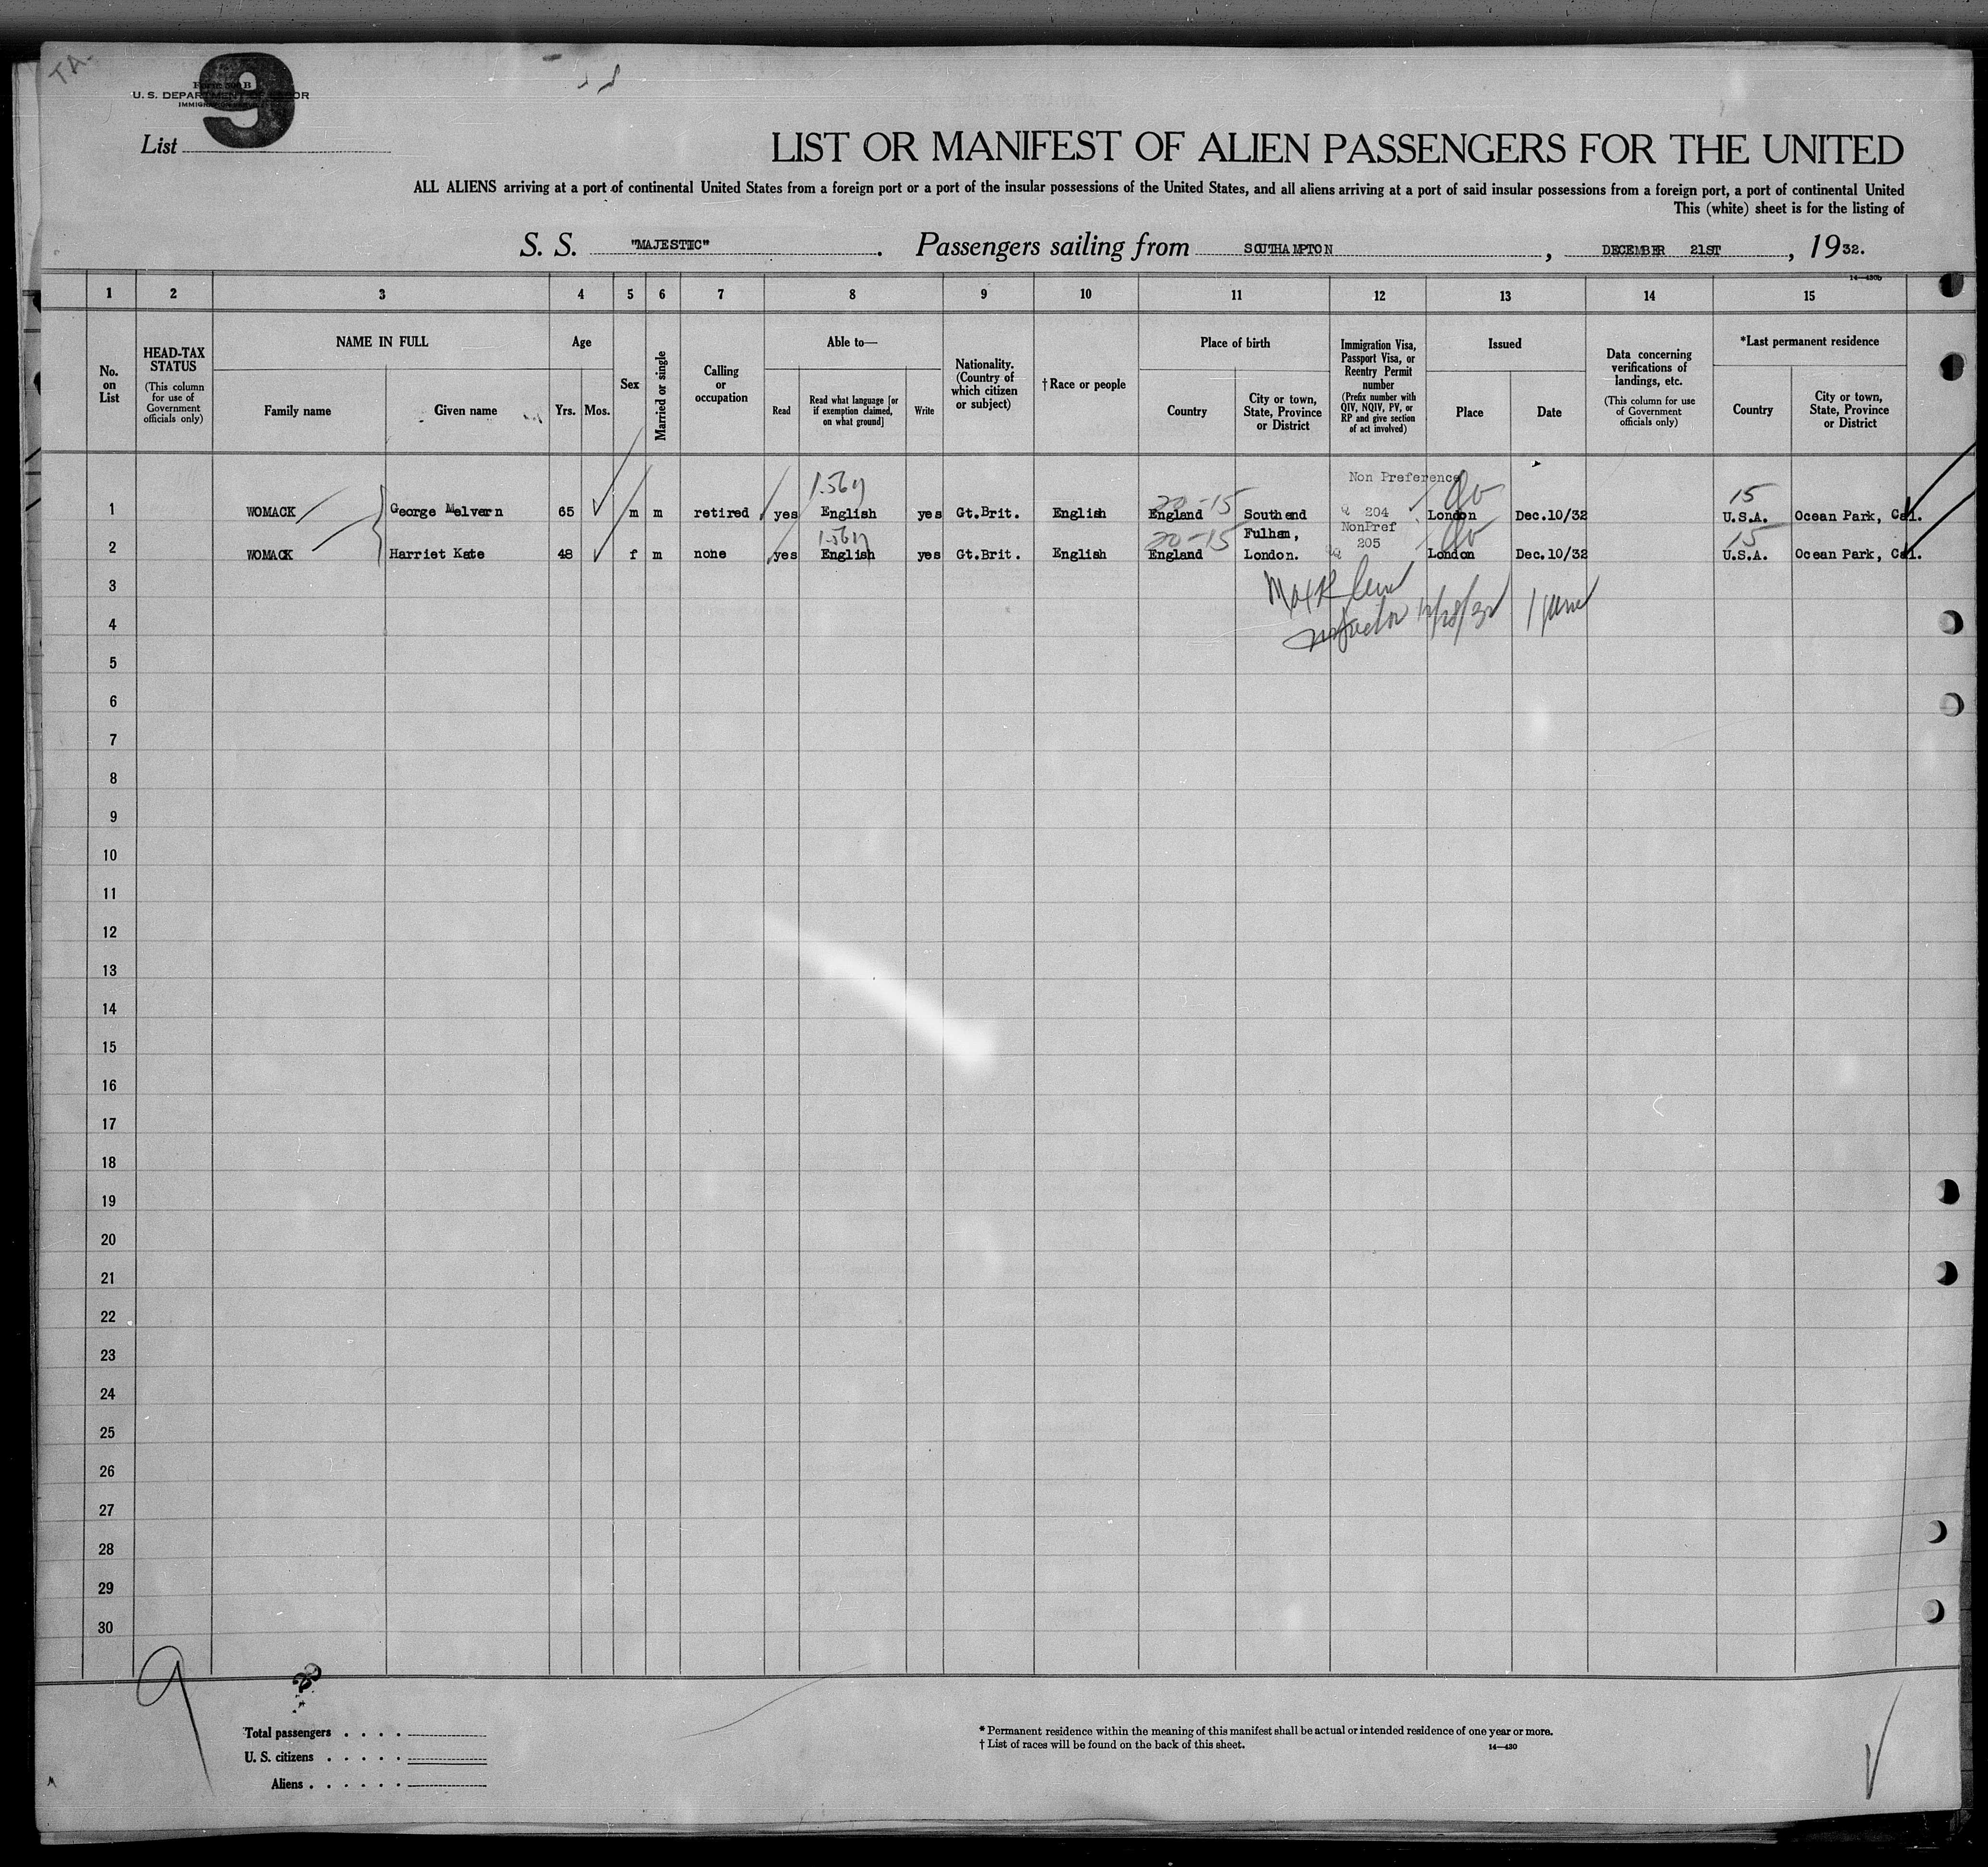 TA-
9
Form 500 B
U. S. DEPARTMENT OF LABOR
IMMIGRATION SERVICE
List
LIST OR MANIFEST OF ALIEN PASSENGERS FOR THE UNITED
ALL ALIENS arriving at a port of continental United States from a foreign port or a port of the insular possessions of the United States, and all aliens arriving at a port of said insular possessions from a foreign port, a port of continental United
This (white) sheet is for the listing of
S. S. "MAJESTIC". Passengers sailing from SOUTHAMPTON, DECEMBER 21ST, 1932.
14—430b
1 2 3 4 5 6 7 8 9 10 11 12 13 14 15
No. on List
HEAD-TAX STATUS
(This column for use of Government officials only)
NAME IN FULL
Family name
Given name
Age
Yrs. Mos.
Sex
Married or single
Calling or occupation
Able to—
Read
Read what language [or if exemption claimed, on what ground]
Write
Nationality. (Country of which citizen or subject)
† Race or people
Place of birth
Country
City or town, State, Province or District
Immigration Visa, Passport Visa, or Reentry Permit number
(Prefix number with QIV, NQIV, PV, or RP and give section of act involved)
Issued
Place
Date
Data concerning verifications of landings, etc.
(This column for use of Government officials only)
*Last permanent residence
Country
City or town, State, Province or District
Non Preference
20-15
15
1 WOMACK George Melvern 65 m m retired yes English yes Gt.Brit. English England Southend Q 204 London Dec.10/32 U.S.A. Ocean Park, Cal.
NonPref
20-15
15
2 WOMACK Harriet Kate 48 f m none yes English yes Gt.Brit. English England Fulham, London. Q 205 London Dec.10/32 U.S.A. Ocean Park, Cal.
3
4
12/28/32
5
6
7
8
9
10
11
12
13
14
15
16
17
18
19
20
21
22
23
24
25
26
27
28
29
30
9
Total passengers . . . .
U. S. citizens . . . . .
Aliens . . . . . .
* Permanent residence within the meaning of this manifest shall be actual or intended residence of one year or more.
† List of races will be found on the back of this sheet.
14—430